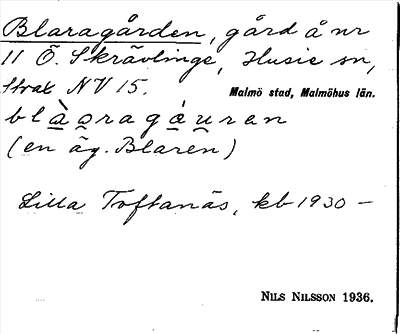 Blaragården, gård å nr
11 Ö. Skrävlinge, Husie sn,
strax NV 15. Malmö stad, Malmöhus län.
blàaragáuran
(en äg. Blaren)
Lilla Toftanäs, kb 1930 —
NILS NILSSON 1936.